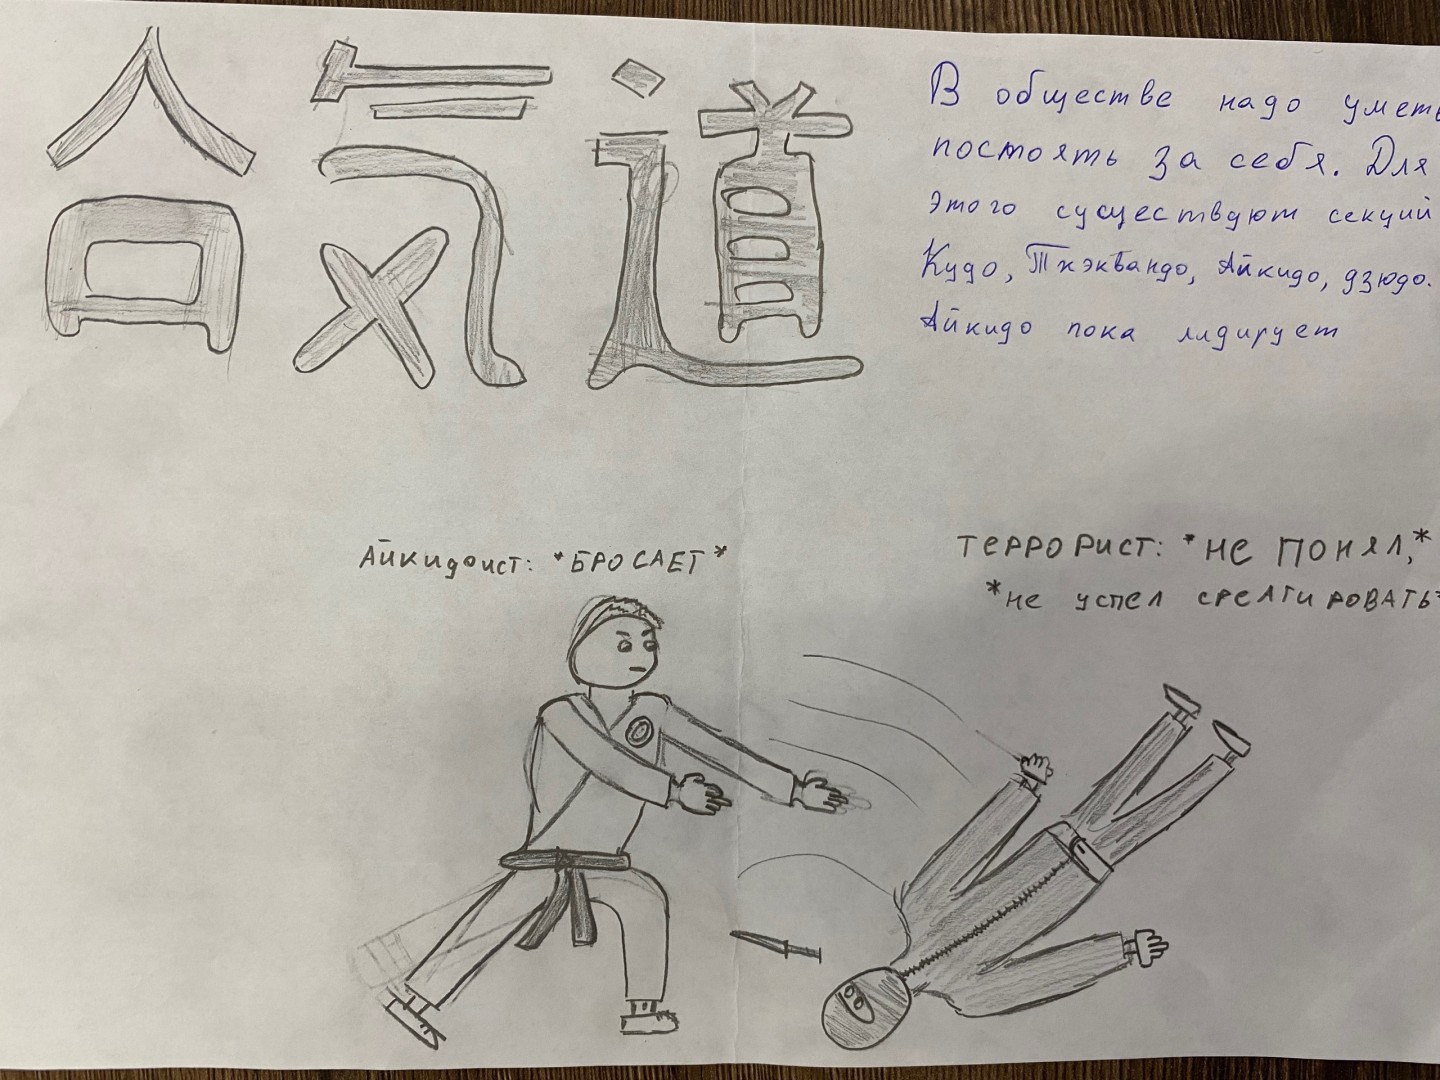 合気道
В обществе надо уметь
постоять за себя. Для
этого существуют секций
Кудо, Тхэквандо, Айкидо, дзюдо.
Айкидо пока лидирует
Айкидоист: *БРОСАЕТ*
ТЕРРОРИСТ: *НЕ ПОНЯЛ,*
*НЕ УСПЕЛ СРЕАГИРОВАТЬ*